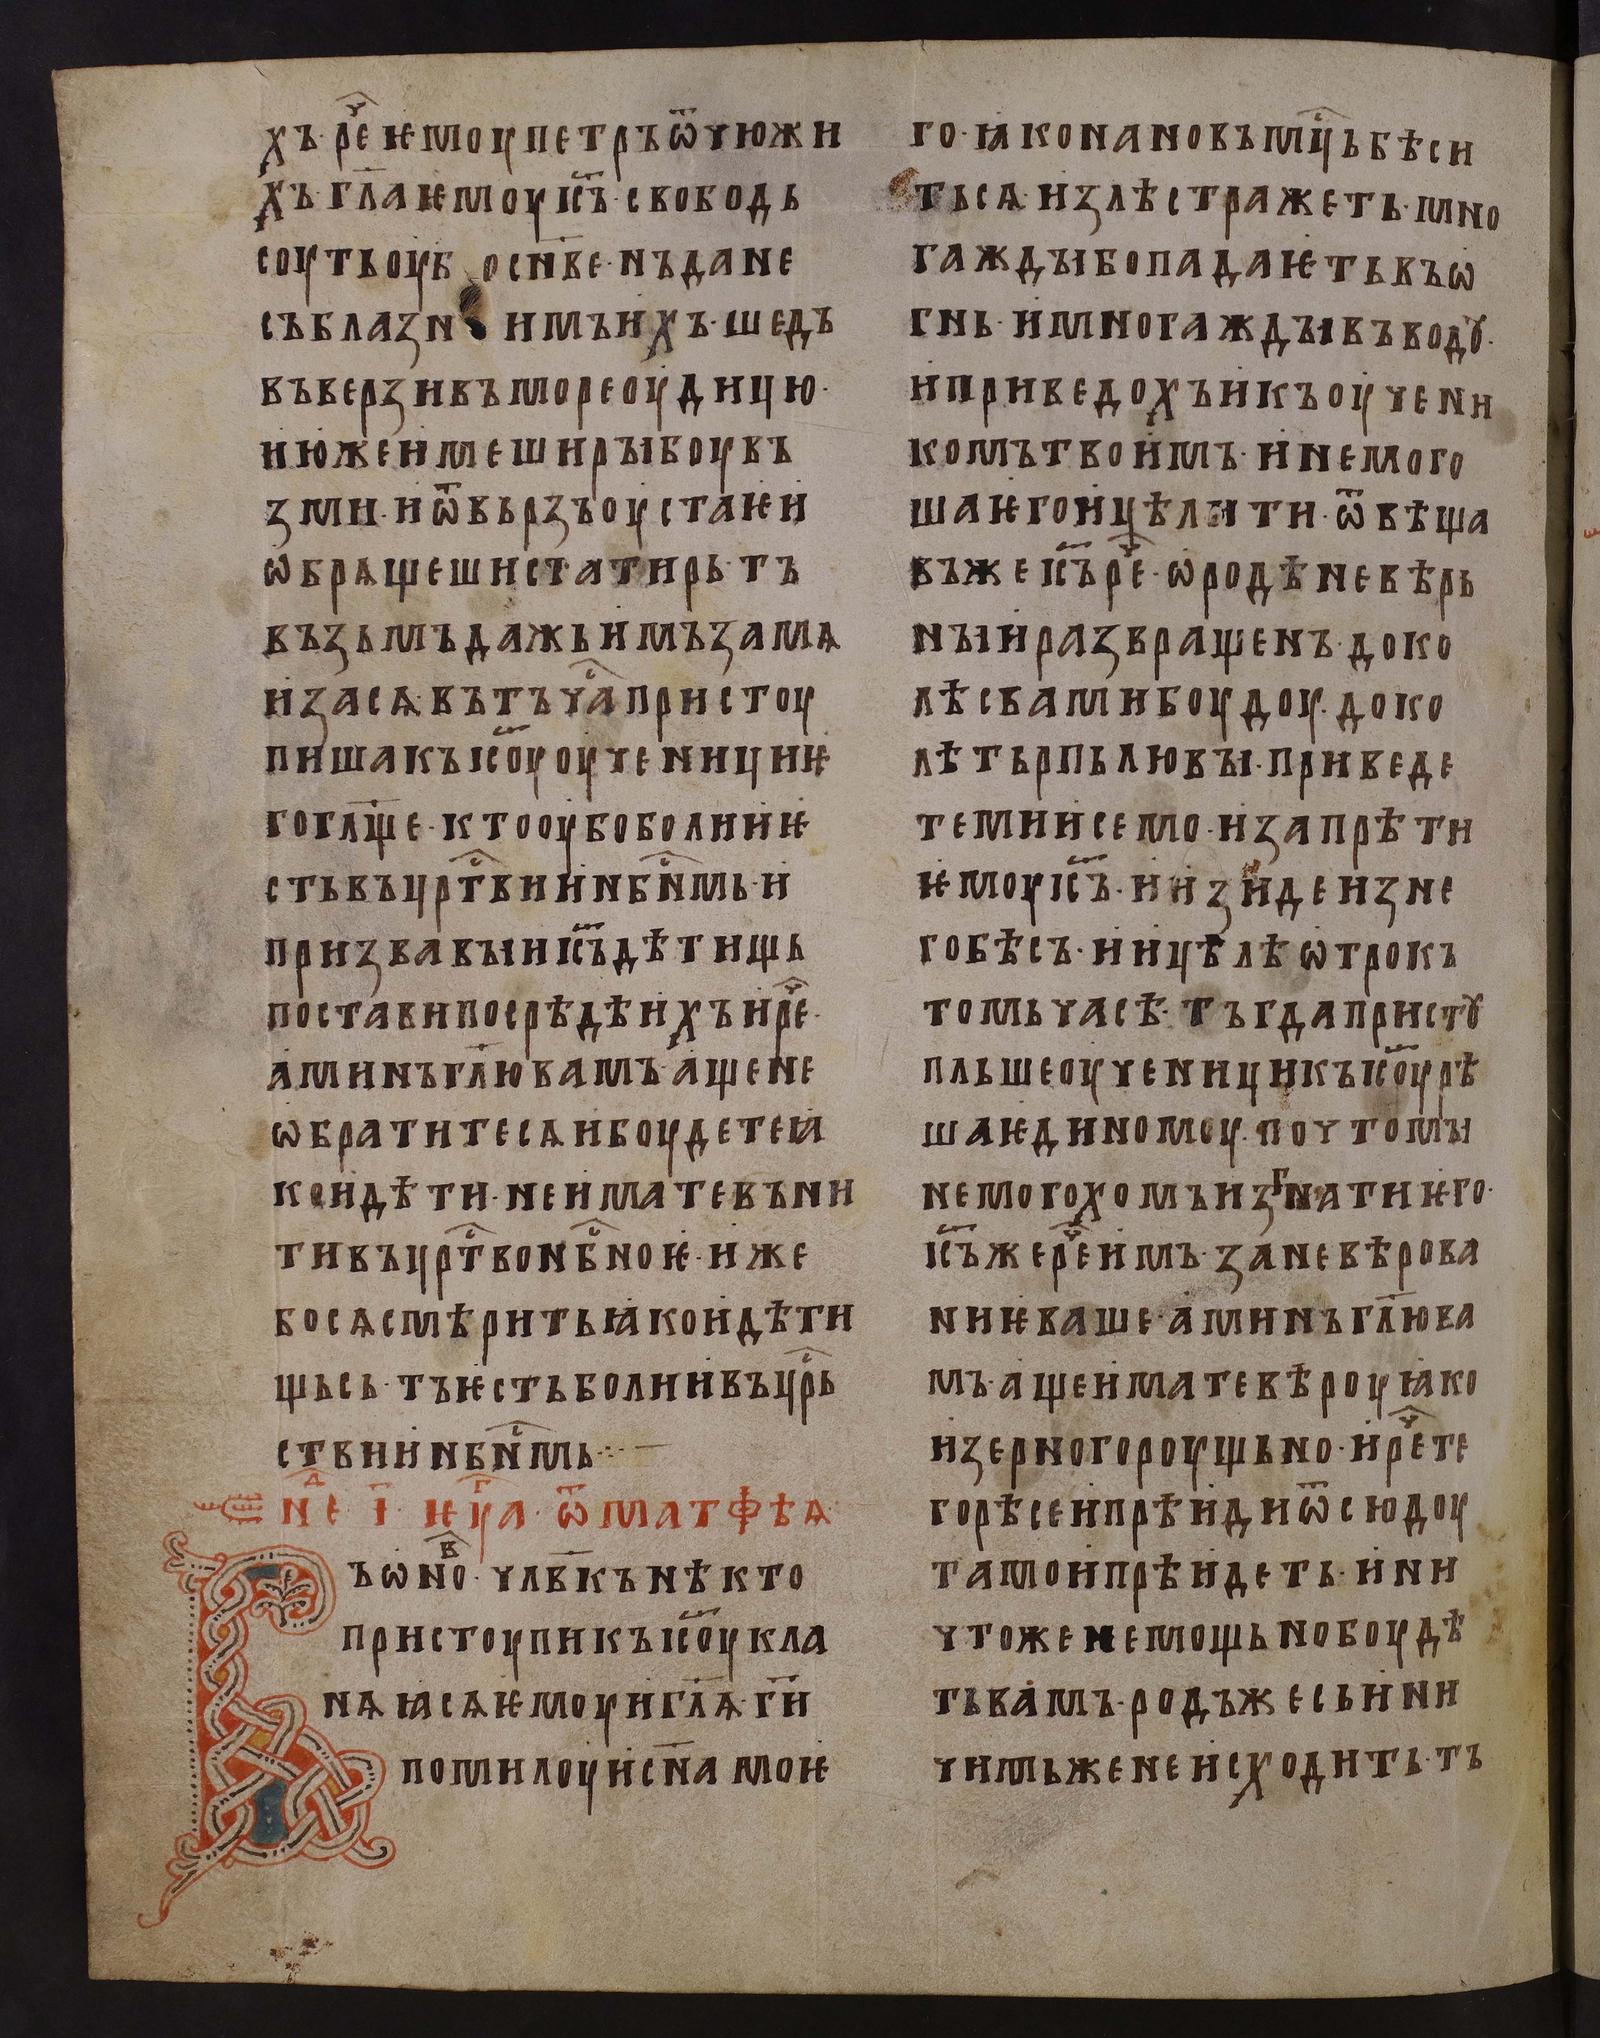 хъ· рч҃е ѥмоу петръ ѿ чюжи
хъ· гл҃а ѥмоу іс҃ъ· свободь
соуть оуб осн҃ве· нъ да не
съблазн имъ ихъ· шедъ
въверзи въ море оудицю·
и юже имеши рыбоу въ
зми· и ѿвьрзъ оуста ѥи
ѡбрѧщеши статирь· тъ
възьмъ дажь имъ за мѧ
и за сѧ· въ тъ ча҃с пристоу
пиша къ іс҃оу оученици ѥ
го гл҃ще· кто оубо болии ѥ
сть въ цр҃ствии нб҃снмь· и
призвавыи іс҃ъ дѣтищь
постави посрѣдѣ ихъ и рч҃е·
аминъ гл҃ю вамъ аще не
ѡбратитесѧ и боудете ꙗ
ко и дѣти· не имате въни
ти въ цр҃ство нб҃сноѥ· иже
бо сѧ смѣрить ꙗко и дѣти
щь сь· тъ ѥсть болии въ цр҃сь
ствии нб҃снмь·:·
Нед҃е· і҃· ѥуг҃а· ѿ матфѣѧ·
Въ ѡно в҃· чл҃вкъ нѣкто
пристоупи къ іс҃оу кла
нѧꙗсѧ ѥмоу и гл҃ѧ· гн҃
помилоуи сн҃а моѥ
го· ꙗко на новъ мц҃ь бѣси
тьсѧ· и злѣ стражеть· мно
гажды бо падаѥть въ ѡ
гнь· и многажды въ водꙋ·
и приведохъ и къ оучени
комъ твоимъ· и не мого
ша ѥго ицѣлити· ѿвѣща
въ же іс҃ъ рч҃е· ѡ роде невѣрь
ныи развращенъ· доко
лѣ с вами боудоу· доко
лѣ тьрпьлю вы· приведе
те ми и сѣмо· и запрѣти
ѥмоу іс҃ъ· и изиде из не
го бѣсъ· и ицѣлѣ ѡтрокъ
томь часѣ· тъгда пристꙋ
пльше оученици къ іс҃оу рѣ
ша ѥдиномоу· почто мы
не могохомъ изгнати ѥго·
іс҃ъ же рч҃е имъ· за невѣрова
ниѥ ваше· аминъ гл҃ю ва
мъ· аще имате вѣроу ꙗко
и зерно гороущьно· и рч҃ете
горѣ сеи прѣиди ѿсюдоу
тамо и прѣидеть· и ни
чтоже не мощьно боудѣ
ть вамъ· родъ же сьи ни
чимьже не исходить· тъ